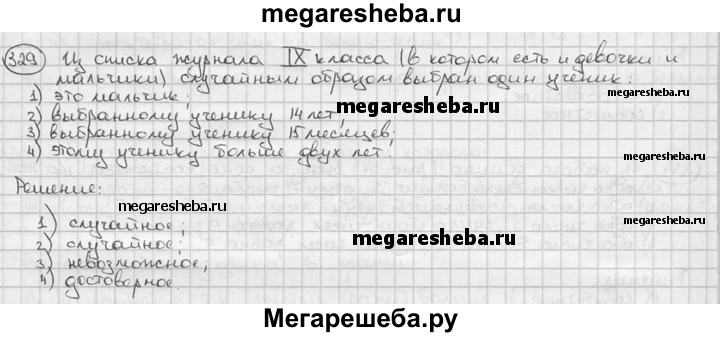 megaresheba.ru
329 Из списка журнала IX класса (в котором есть и девочки и
мальчики) случайным образом выбран один ученик:
1) это мальчик;
megaresheba.ru
2) выбранному ученику 14 лет;
megaresheba.ru
3) выбранному ученику 15 месяцев;
4) этому ученику больше двух лет.
megaresheba.ru
Решение:
megaresheba.ru
1) случайное;
megaresheba.ru
2) случайное;
megaresheba.ru
3) невозможное;
4) достоверное.
Мегарешеба.ру